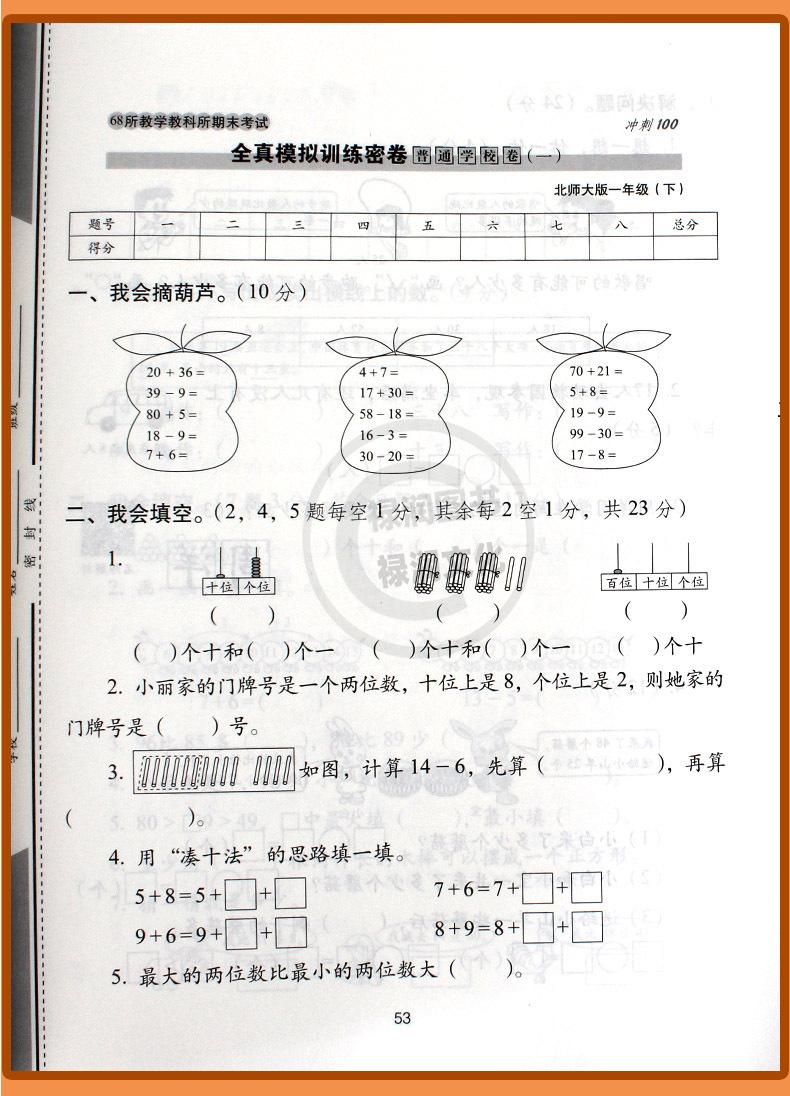 68所教学教科所期末考试
冲刺100
全真模拟训练密卷 普通学校卷 (一)
北师大版一年级(下)
题号 一 二 三 四 五 六 七 八 总分
得分
一、我会摘葫芦。(10分)
20+36=
39-9=
80+5=
18-9=
7+6=
4+7=
17+30=
58-18=
16-3=
30-20=
70+21=
5+8=
19-9=
99-30=
17-8=
二、我会填空。(2,4,5题每空1分,其余每2空1分,共23分)
1.
十位 个位
百位 十位 个位
( ) ( ) ( )
( )个十和( )个一 ( )个十和( )个一 ( )个十
2. 小丽家的门牌号是一个两位数,十位上是8,个位上是2,则她家的
门牌号是( )号。
3. 如图,计算14-6,先算( ),再算
( )。
4. 用“凑十法”的思路填一填。
5+8=5+□+□ 7+6=7+□+□
9+6=9+□+□ 8+9=8+□+□
5. 最大的两位数比最小的两位数大( )。
53
班级
姓名
学校
密封线
禄润图书